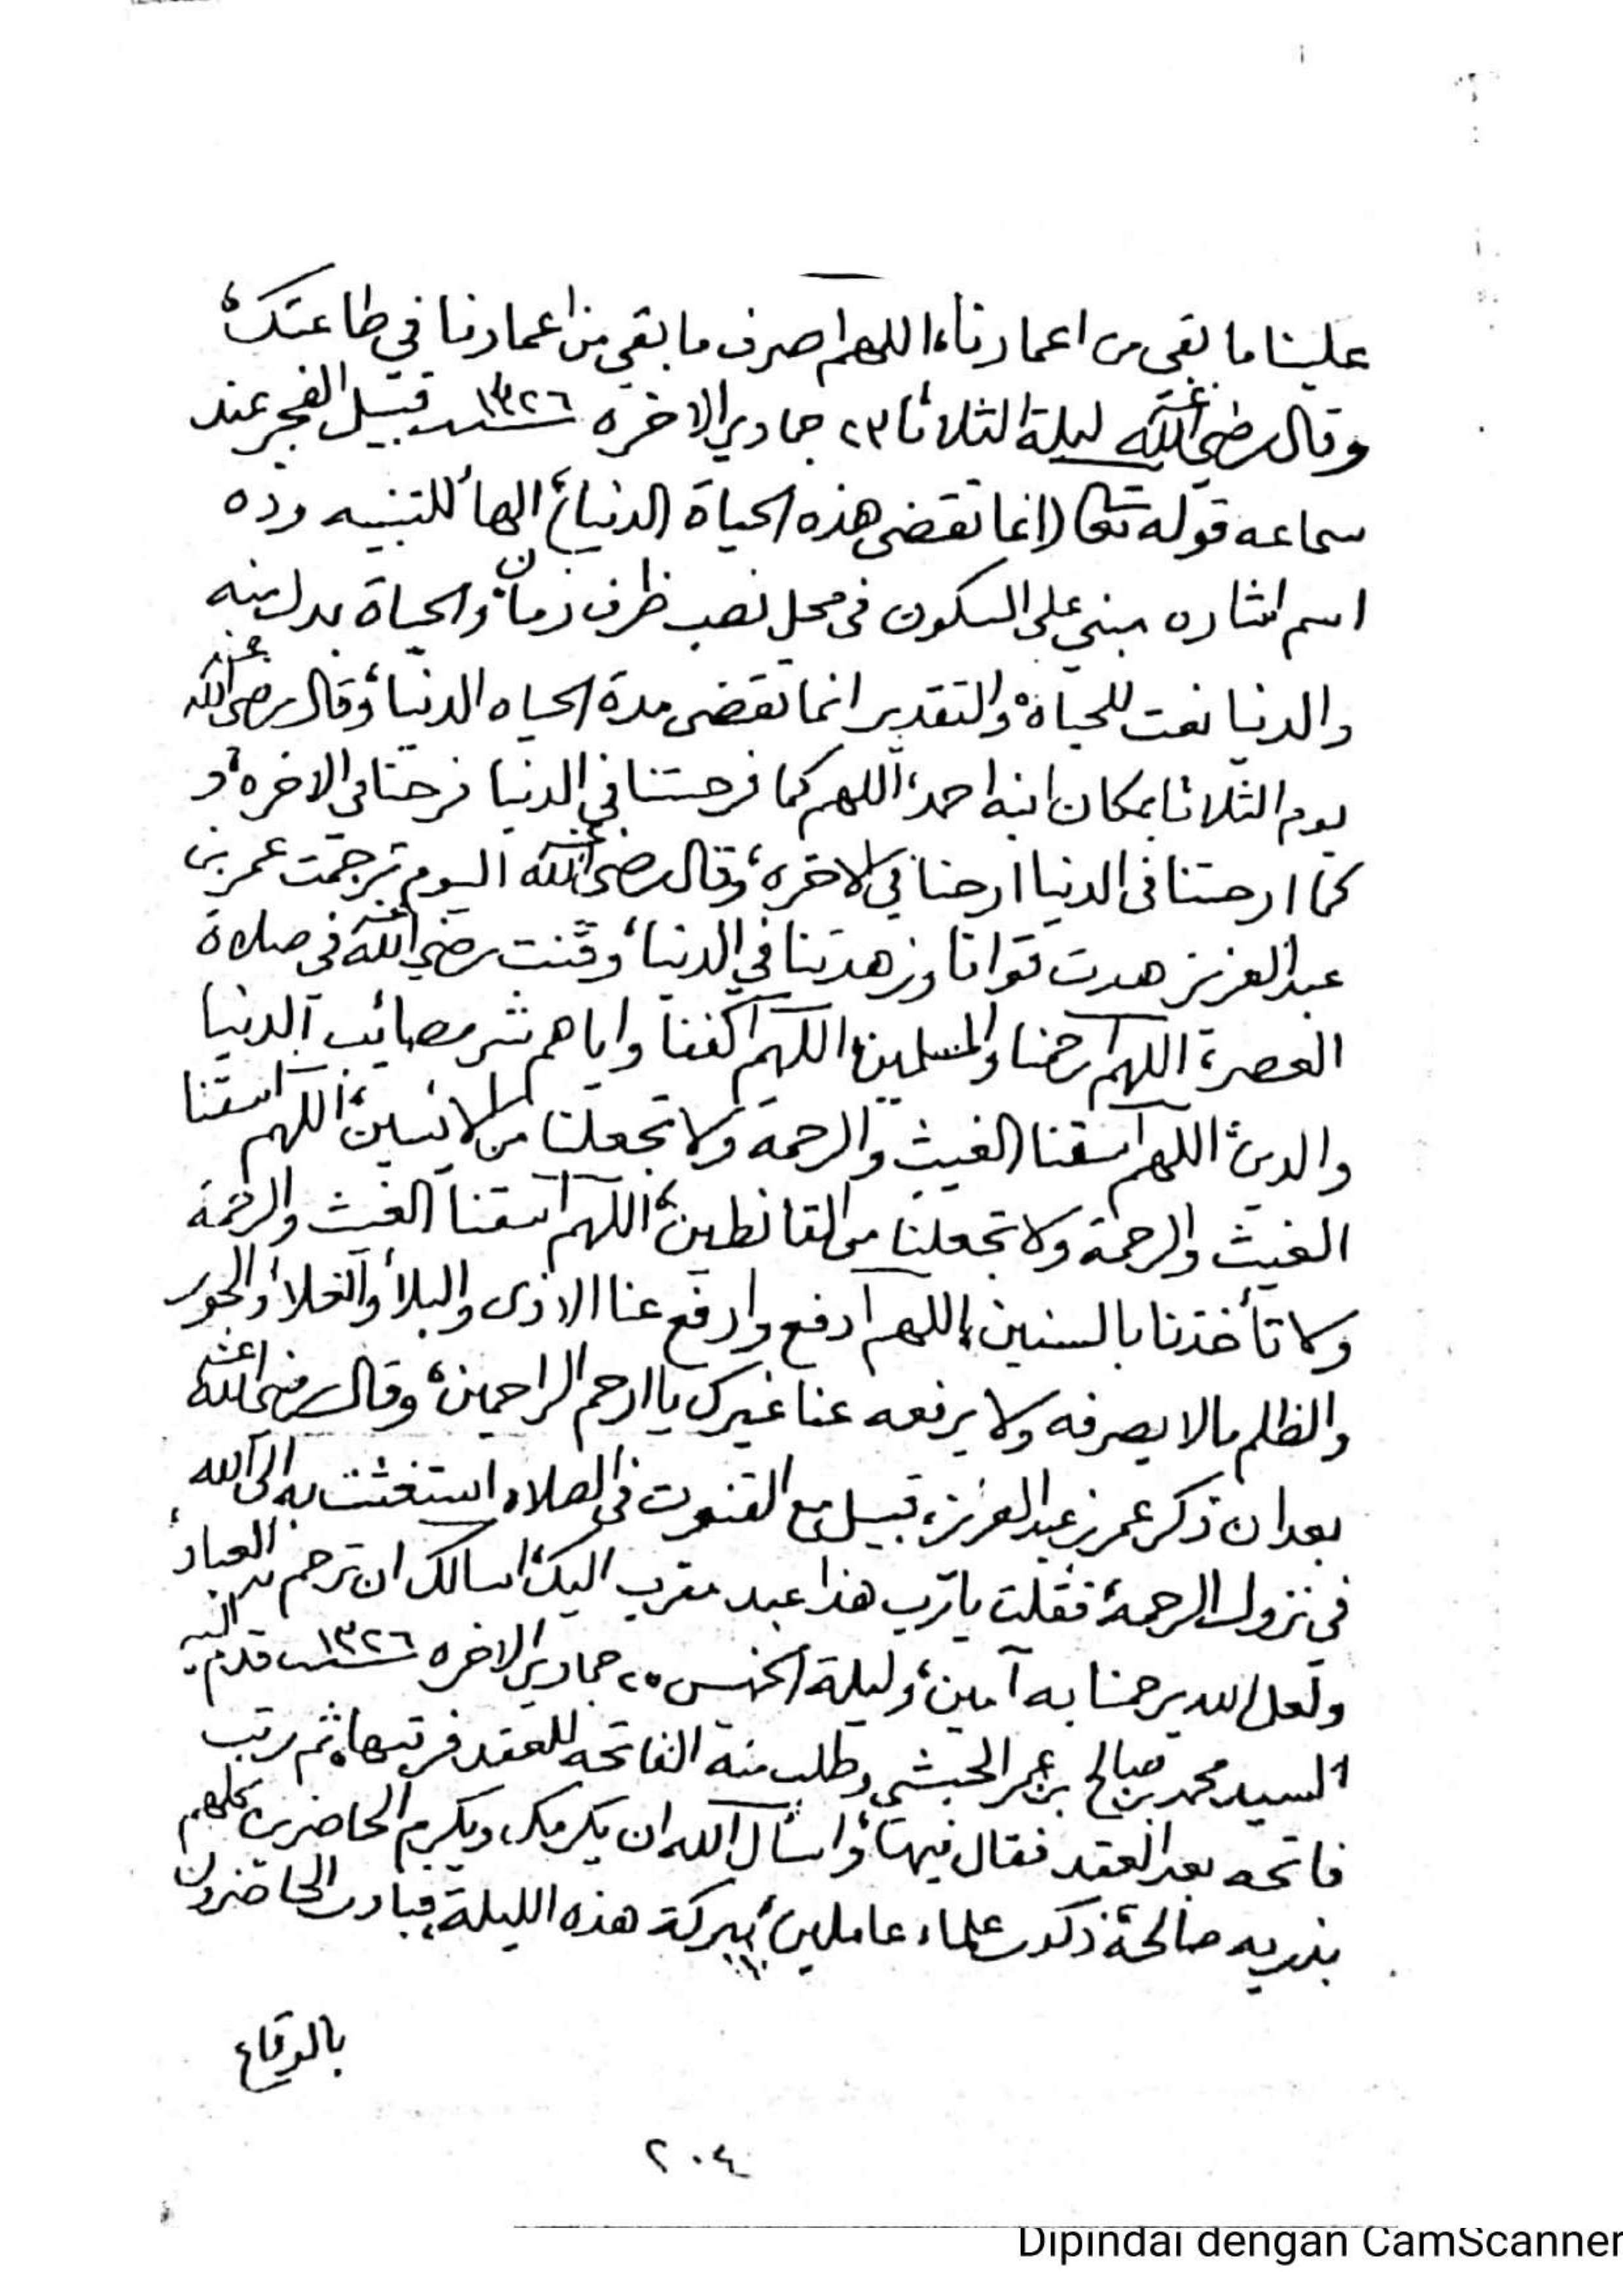 علينا ما بقى من اعمارنا، اللهم اصرف ما بقي من اعمارنا في طاعتك،
وقال رضي الله عنه ليلة الثلاثا ٢٣ جمادي الاخره سنة ١٣٢٦ قبيل الفجر عند
سماعه قوله تعالى (انما تقضى هذه الحياة الدنيا) الهاء للتنبيه وذه
اسم اشاره مبني على السكون في محل نصب ظرف زمان، والحياة بدل منه
والدنيا نعت للحياة، والتقدير انما تقضى مدة الحياه الدنيا، وقال رضي الله عنه
يوم الثلاثا بمكان ابنه احمد، اللهم كما فرحتنا في الدنيا فرحنا في الاخره، و
كما ارحتنا في الدنيا ارحنا في الاخره، وقال رضي الله عنه اليوم ترجمت عمر بن
عبد العزيز هدت قوانا وزهدتنا في الدنيا، وقنت رضي الله عنه في صلاة
العصر، اللهم ارحمنا والمسلمين، اللهم اكفنا واياهم شر مصائب الدنيا
والدين، اللهم اسقنا الغيث والرحمة ولا تجعلنا من الايسين، اللهم اسقنا
الغيث والرحمة ولا تجعلنا من القانطين، اللهم اسقنا الغيث والرحمة
ولا تأخذنا بالسنين، اللهم ادفع وارفع عنا الاذى والبلاء والغلاء والجور
والظلم مالا يصرفه ولا يرفعه عنا غيرك يا ارحم الراحمين، وقال رضي الله عنه
بعد ان ذكر عمر بن عبد العزيز، قبيل مع القنوت في الصلاه استغثت به الى الله
في نزول الرحمة، فقلت يا رب هذا عبد مقرب اليك، اسالك ان ترحم به العباد،
ولعل الله يرحمنا به آمين، وليلة الخميس ٢٥ جمادي الاخره سنة ١٣٢٦ قدم اليه
السيد محمد بن صالح بن عمر الحبشي وطلب منه الفاتحه للعقد فرتبها، ثم رتب
فاتحه بعد العقد فقال فيها، واسأل الله ان يكرمك ويكرم الحاضرين كلهم
بذريه صالحة، ذكور علماء عاملين، ببركة هذه الليلة، فبادر الحاضرون
بالوقاع
٢٠٤
Dipindai dengan CamScanner